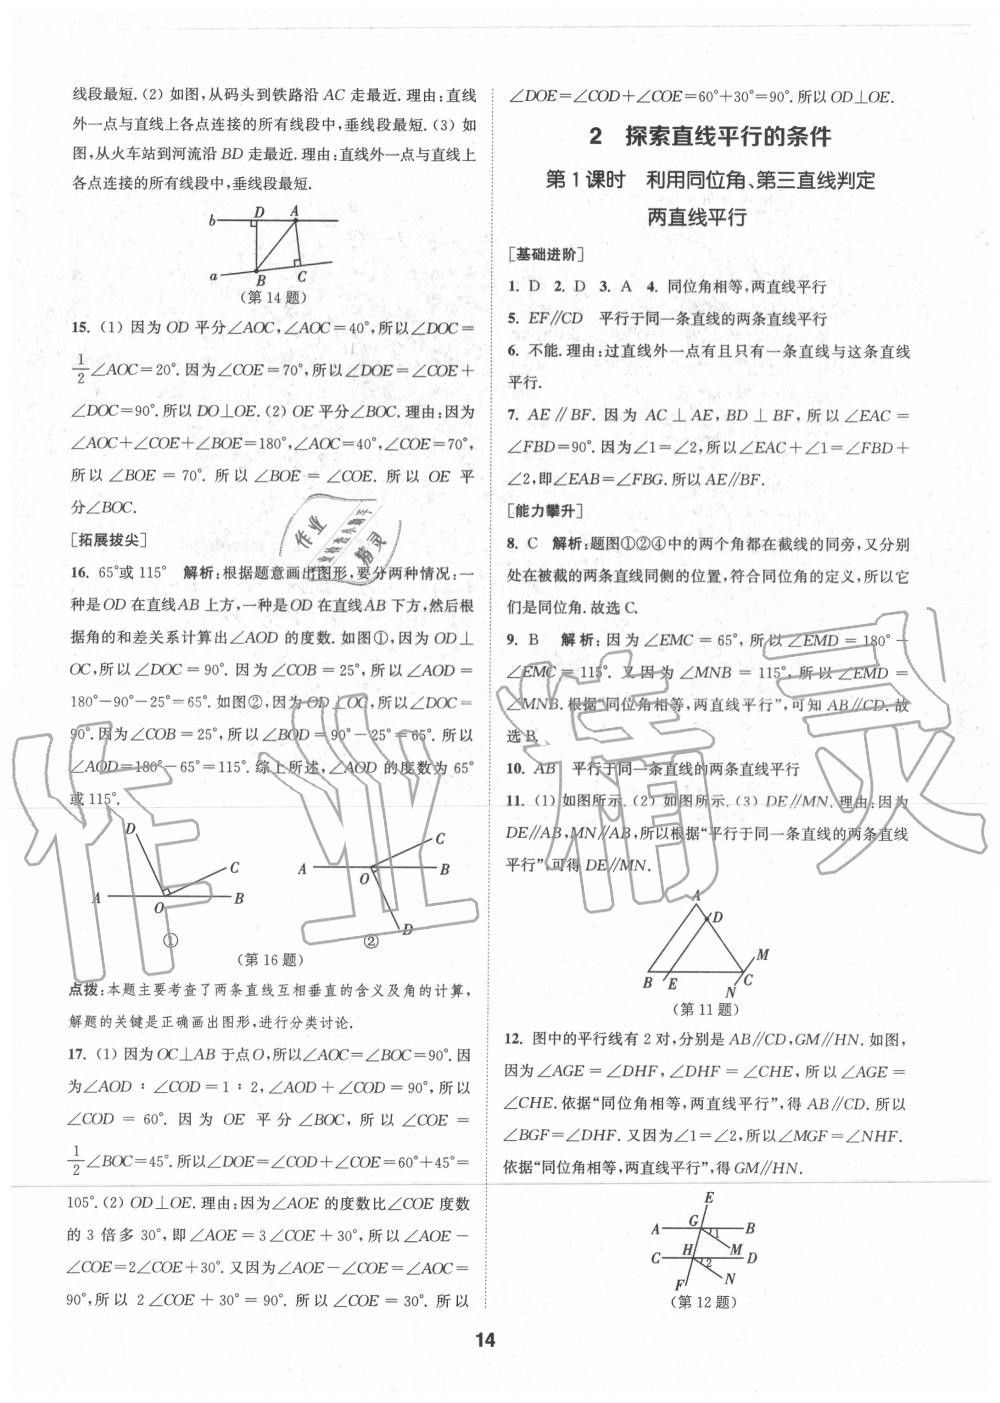 线段最短.(2) 如图,从码头到铁路沿 AC 走最近.理由:直线
外一点与直线上各点连接的所有线段中,垂线段最短.(3) 如
图,从火车站到河流沿 BD 走最近.理由:直线外一点与直线上
各点连接的所有线段中,垂线段最短.
b D A
a B C
(第 14 题)
15. (1) 因为 OD 平分∠AOC,∠AOC=40°,所以∠DOC=
1/2∠AOC=20°.因为∠COE=70°,所以∠DOE=∠COE+
∠DOC=90°.所以 DO⊥OE.(2) OE 平分∠BOC. 理由:因为
∠AOC+∠COE+∠BOE=180°,∠AOC=40°,∠COE=70°,
所以∠BOE = 70°. 所以∠BOE = ∠COE. 所以 OE 平
分∠BOC.
[拓展拔尖]
16. 65°或 115° 解析:根据题意画出图形,要分两种情况:一
种是 OD 在直线 AB 上方,一种是 OD 在直线 AB 下方,然后根
据角的和差关系计算出∠AOD 的度数.如图①,因为 OD⊥
OC,所以∠DOC=90°.因为∠COB=25°,所以∠AOD=
180°-90°-25°=65°.如图②,因为 OD⊥OC,所以∠DOC=
90°.因为∠COB=25°,所以∠BOD=90°-25°=65°.所以
∠AOD=180°-65°=115°.综上所述,∠AOD 的度数为 65°
或 115°.
D C A O B ①
C A O B D ②
(第 16 题)
点拨:本题主要考查了两条直线互相垂直的含义及角的计算,
解题的关键是正确画出图形,进行分类讨论.
17. (1) 因为 OC⊥AB 于点 O,所以∠AOC=∠BOC=90°.因
为∠AOD∶∠COD=1∶2,∠AOD+∠COD=90°,所以
∠COD = 60°. 因为 OE 平分∠BOC,所以∠COE =
1/2∠BOC=45°.所以∠DOE=∠COD+∠COE=60°+45°=
105°.(2) OD⊥OE.理由:因为∠AOE 的度数比∠COE 度数
的 3 倍多 30°,即∠AOE=3∠COE+30°,所以∠AOE-
∠COE=2∠COE+30°.又因为∠AOE-∠COE=∠AOC=
90°,所以 2∠COE+30°=90°.所以∠COE=30°.所以
∠DOE=∠COD+∠COE=60°+30°=90°.所以 OD⊥OE.
2 探索直线平行的条件
第 1 课时 利用同位角、第三直线判定
两直线平行
[基础进阶]
1. D 2. D 3. A 4. 同位角相等,两直线平行
5. EF∥CD 平行于同一条直线的两条直线平行
6. 不能.理由:过直线外一点有且只有一条直线与这条直线
平行.
7. AE∥BF. 因为 AC⊥AE,BD⊥BF,所以∠EAC=
∠FBD=90°.因为∠1=∠2,所以∠EAC+∠1=∠FBD+
∠2,即∠EAB=∠FBG.所以 AE∥BF.
[能力攀升]
8. C 解析:题图①②④中的两个角都在截线的同旁,又分别
处在被截的两条直线同侧的位置,符合同位角的定义,所以它
们是同位角.故选 C.
9. B 解析:因为∠EMC=65°,所以∠EMD=180°-
∠EMC=115°.又因为∠MNB=115°,所以∠EMD=
∠MNB.根据“同位角相等,两直线平行”,可知 AB∥CD.故
选 B.
10. AB 平行于同一条直线的两条直线平行
11. (1) 如图所示.(2) 如图所示.(3) DE∥MN.理由:因为
DE∥AB,MN∥AB,所以根据“平行于同一条直线的两条直线
平行”,可得 DE∥MN.
A D M B E N C
(第 11 题)
12. 图中的平行线有 2 对,分别是 AB∥CD,GM∥HN.如图,
因为∠AGE=∠DHF,∠DHF=∠CHE,所以∠AGE=
∠CHE.依据“同位角相等,两直线平行”,得 AB∥CD.所以
∠BGF=∠DHF.又因为∠1=∠2,所以∠MGF=∠NHF.
依据“同位角相等,两直线平行”,得 GM∥HN.
E
A G 1 B
C H M D
2
F N
(第 12 题)
14
作业精灵
作业
精灵